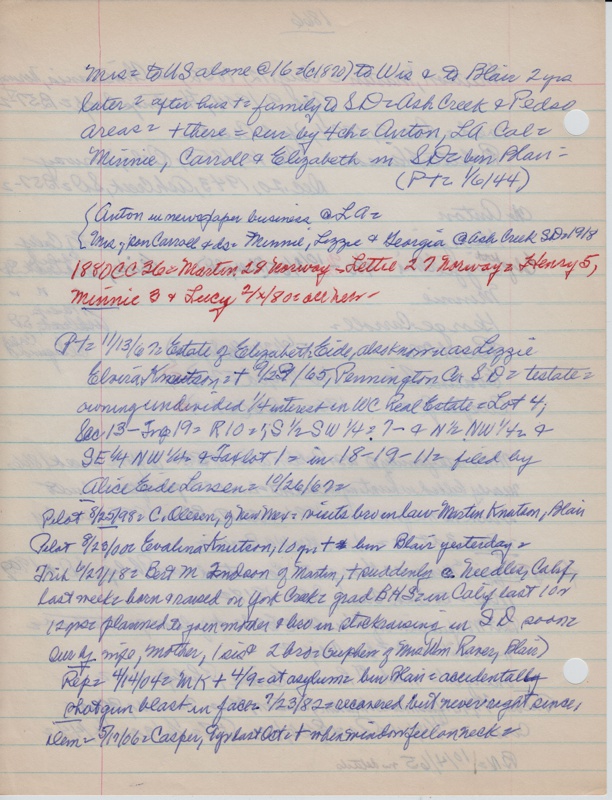 Mrs = to US alone @ 16 = (c1870) to Wis & to Blair 2 yrs
later = after hus + = family to SD = Ash Creek & Pedso
areas = + there = sur by 4 ch = Anton, LA Cal =
Minnie, Carroll & Elizabeth in SD = bur Blair =
(P+ = 1/6/44)
{Anton in newspaper business @ LA =
{Mrs, son Carroll & ds = Minnie, Lizzie & Georgia @ Ash Creek SD = 1918
1880 CC 36 = Martin 28 Norway = Lettie 27 Norway = Henry 5,
Minnie 3 & Lucy 2/480 = all here -
P+ = 11/13/67 = Estate of Elizabeth Eide, also known as Lizzie
Elvira Knutson = + 9/ /65, Pennington Co. SD = testate =
owning undivided 1/4 interest in WC Real Estate = Lot 4,
Sec 13 - Twp 19 = R 10 = ; S 1/2 SW 1/4 = 7 - & N 1/2 NW 1/4 = &
SE 1/4 NW 1/4 = & Taxlot 1 = in 18-19-11 = filed by
Alice Eide Larsen = 10/26/67 =
Pilot 8/25/98 = C. Oleson, of New Mex = visits bro in law Martin Knutson, Blair
Pilot 8/23/00 = Evalina Knutson, 10 yrs + bur Blair yesterday =
Trib 6/27/18 = Bert M of Martin, + suddenly @ Needles, Calif,
last week = born & raised on York Creek = grad BHS = in Calif last 10 or
12 yrs = planned to join mother & bro in stockraising in SD soon =
sur by wife, mother, 1 sis & 2 bro = (nephew of Mrs Wm Raver, Blair)
Rep = 4/14/04 = MK + 4/9 = at asylum = bur Blair = accidentally
shotgun blast in face = 7/23/82 = recovered but never right since,
Dem = 5/17/06 = Casper, last Oct = + when window fell on neck =